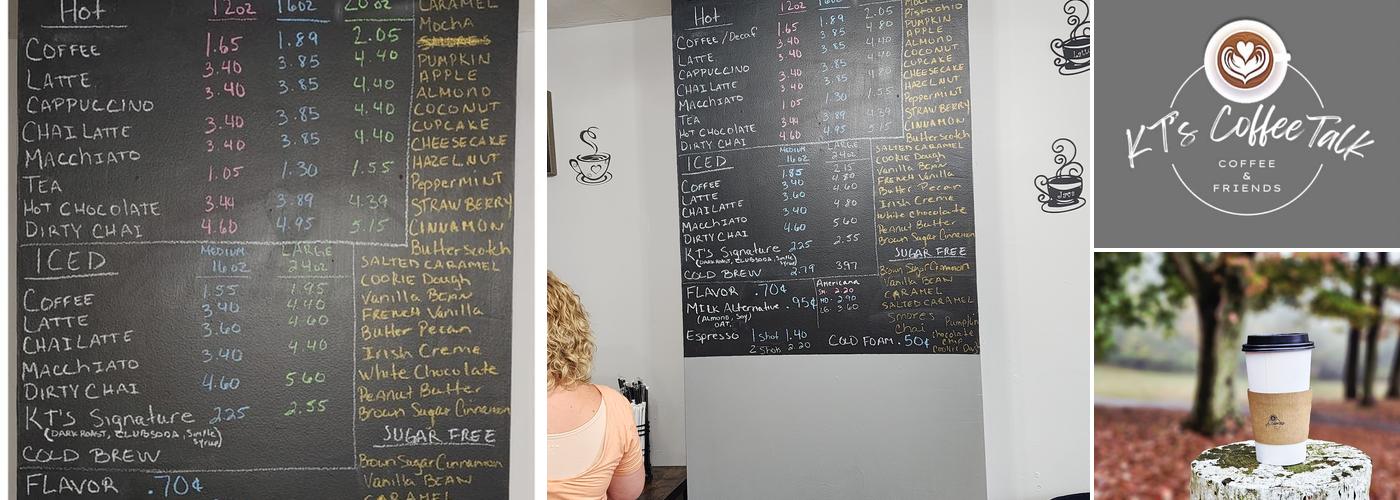 Hot 12oz 16oz 20oz
COFFEE 1.65 1.89 2.05
LATTE 3.40 3.85 4.40
CAPPUCCINO 3.40 3.85 4.40
CHAI LATTE 3.40 3.85 4.40
MACCHIATO 3.40 3.85 4.40
TEA 1.05 1.30 1.55
HOT CHOCOLATE 3.44 3.89 4.39
DIRTY CHAI 4.60 4.95 5.15
CARAMEL
MOCHA
PUMPKIN
APPLE
ALMOND
COCONUT
CUPCAKE
CHEESECAKE
HAZELNUT
Peppermint
STRAWBERRY
CINNAMON
Butterscotch
SALTED CARAMEL
COOKIE Dough
Vanilla BEAN
FRENCH Vanilla
Butter Pecan
Irish Creme
White Chocolate
Peanut Butter
Brown Sugar Cinnamon
SUGAR FREE
Brown Sugar Cinnamon
Vanilla BEAN
CARAMEL
ICED MEDIUM 16oz LARGE 24oz
COFFEE 1.55 1.95
LATTE 3.40 4.40
CHAI LATTE 3.60 4.60
MACCHIATO 3.40 4.40
DIRTY CHAI 4.60 5.60
KT'S Signature 2.25 2.55
(DARK ROAST, CLUB SODA, Simple Syrup)
COLD BREW
FLAVOR .70¢
Hot 12oz 16oz
COFFEE/Decaf 1.65 1.89 2.05
LATTE 3.40 3.85
CAPPUCCINO
CHAI LATTE
MACCHIATO
TEA 1.05 1.30 1.55
HOT CHOCOLATE 3.44 3.89 4.39
DIRTY CHAI 4.60 4.95 5.15
Pistachio
PUMPKIN
APPLE
ALMOND
COCONUT
CUPCAKE
CHEESECAKE
HAZELNUT
Peppermint
STRAWBERRY
CINNAMON
Butterscotch
SALTED CARAMEL
COOKIE Dough
Vanilla BEAN
FRENCH Vanilla
Butter Pecan
Irish Creme
White Chocolate
Peanut Butter
Brown Sugar Cinnamon
SUGAR FREE
Brown Sugar Cinnamon
Vanilla BEAN
CARAMEL
SALTED CARAMEL
Smores
Chai
Pumpkin
chocolate
chip
ICED MEDIUM 16oz LARGE 24oz
COFFEE 1.85 2.15
LATTE 3.40
CHAI LATTE 3.60 4.60
MACCHIATO 3.40 4.80
DIRTY CHAI 5.60
KT'S Signature 2.25 2.55
(DARK ROAST, CLUB SODA, Simple Syrup)
COLD BREW 2.79 3.97
FLAVOR .70¢
MILK Alternative .95¢
(Almond, Soy, OAT)
Americana
SM. 2.20
MD. 2.90
LG. 3.60
Espresso 1 Shot 1.40
2 Shots 2.20
COLD FOAM .50¢
KT's Coffee Talk
COFFEE
&
FRIENDS